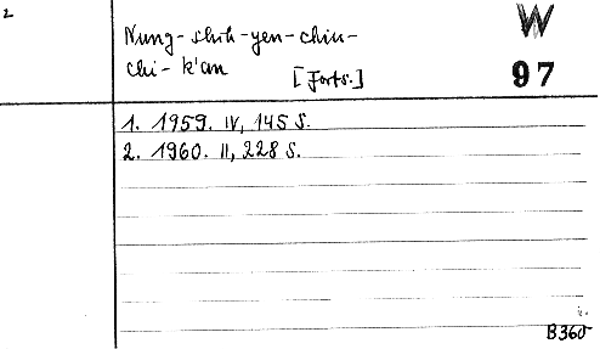 2
Nung-shih-yen-chiu-
chi-k'an [Forts.]
W
97
1. 1959. IV, 145 S.
2. 1960. II, 228 S.
B360